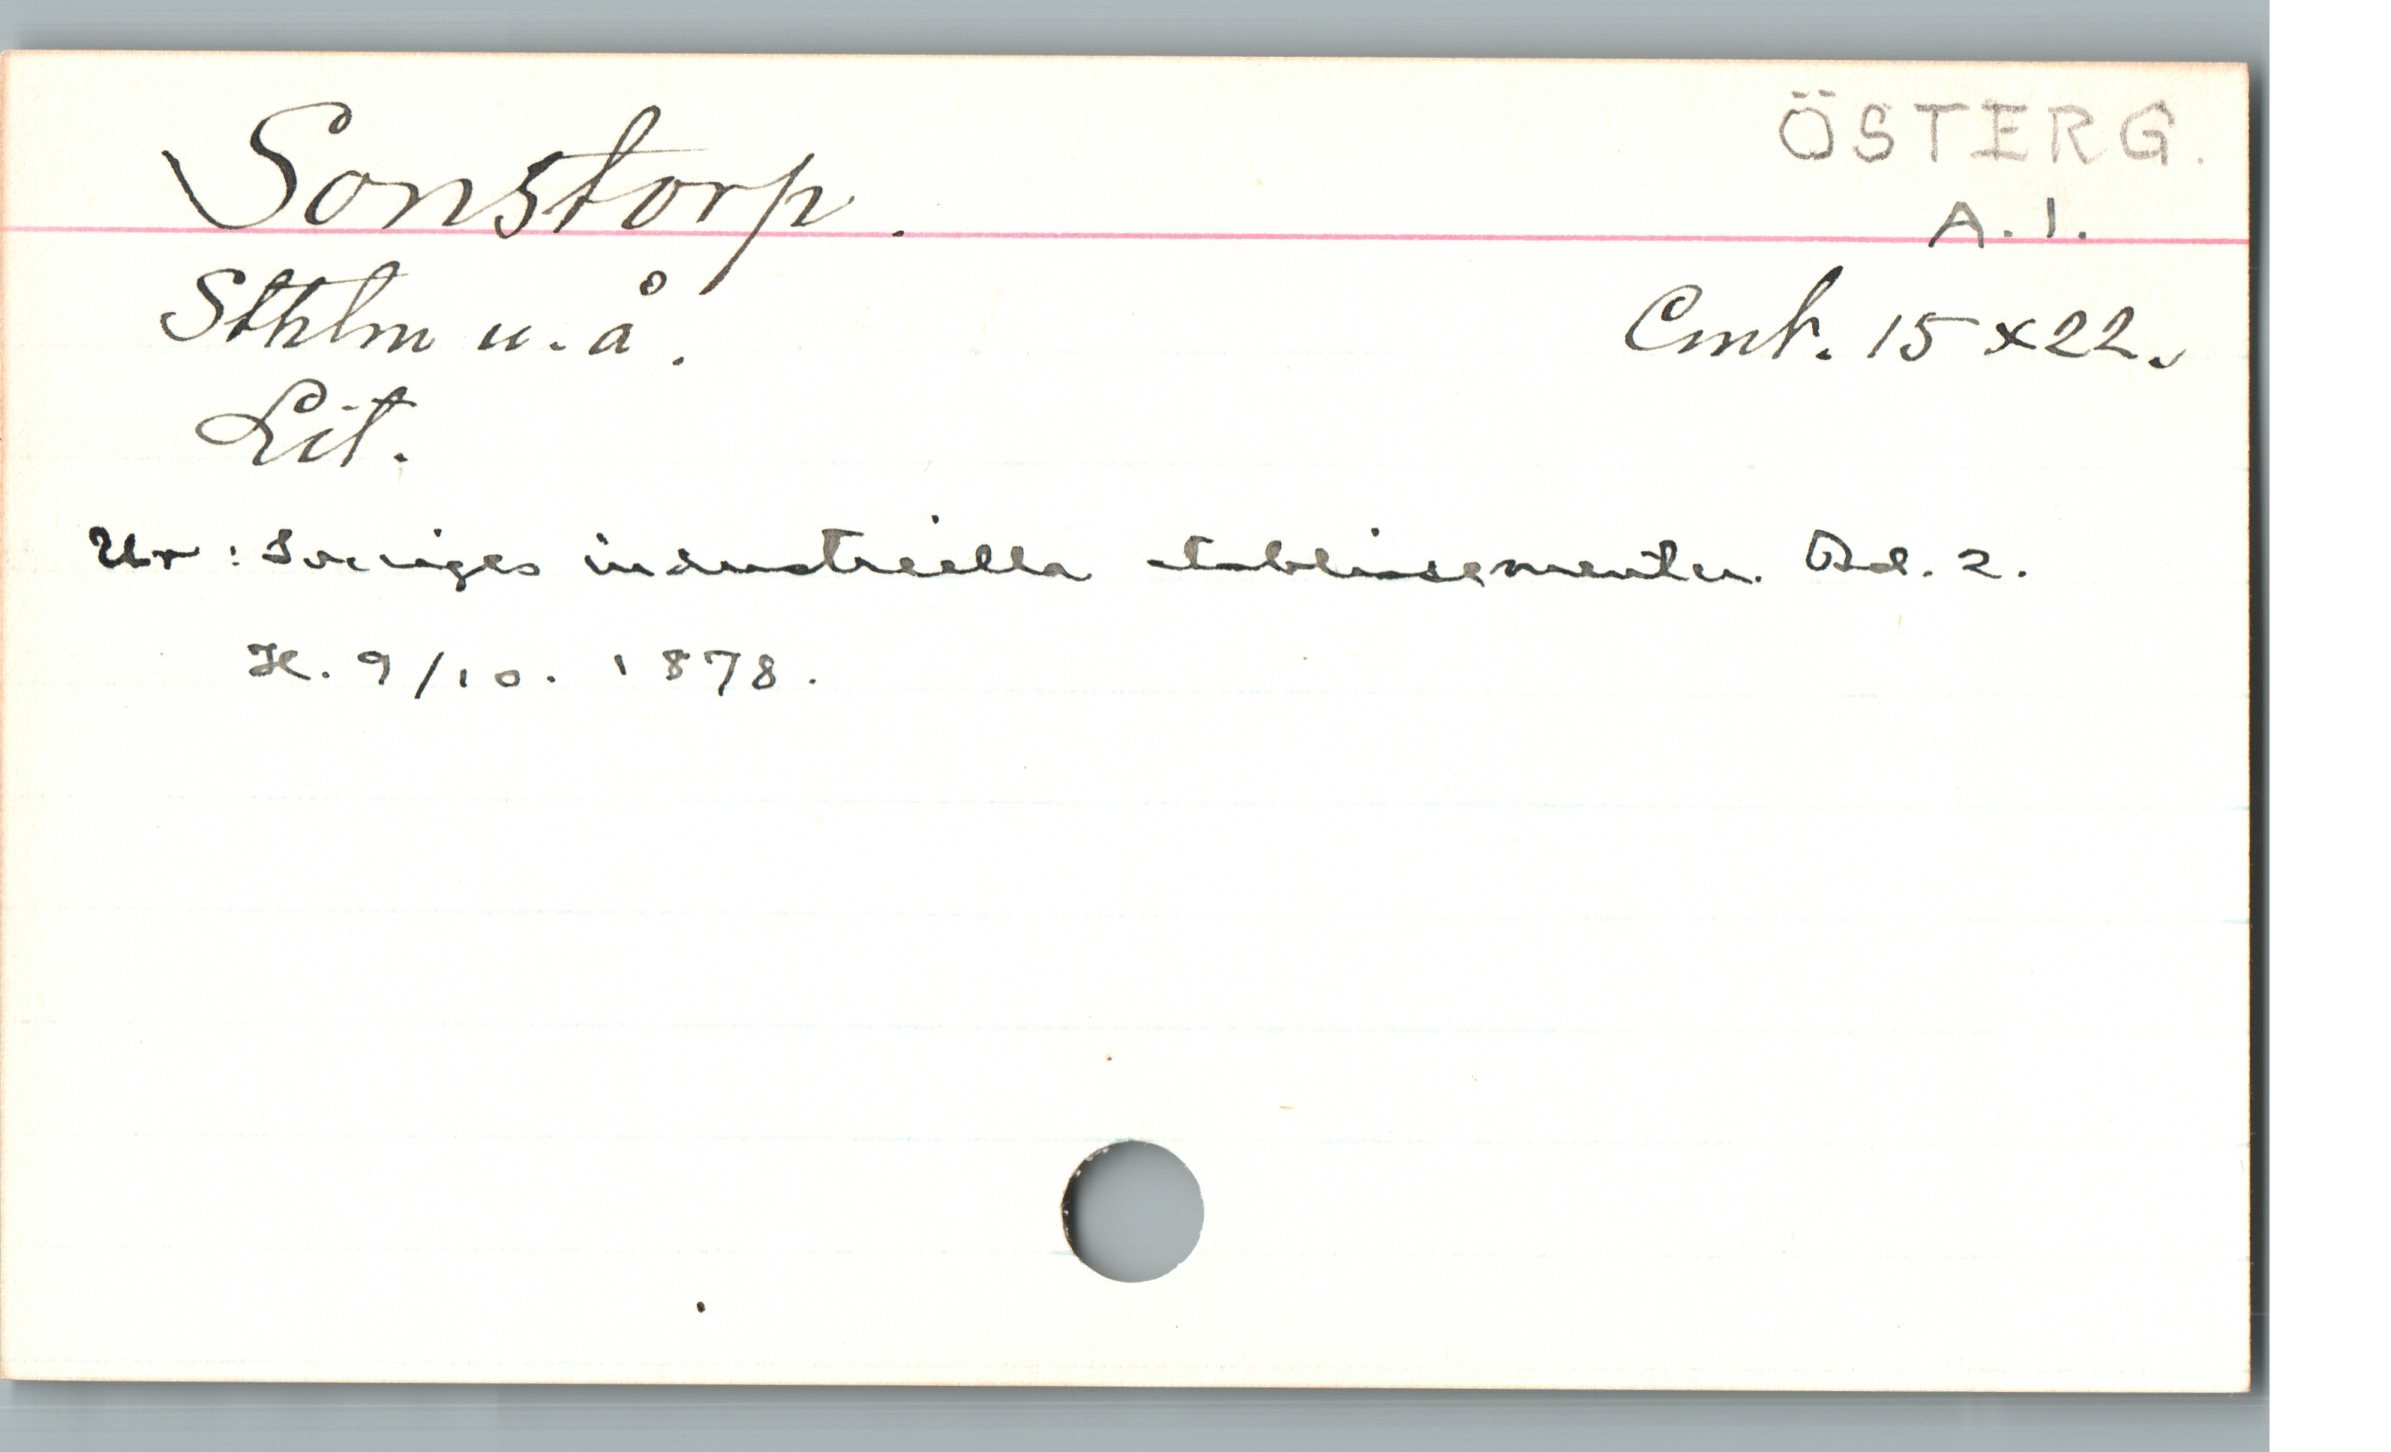 Sonstorp.
ÖSTERG.
A. 1.
Sthlm u. å.
Cmk. 15 x 22.
Lit.
Ur: Sveriges industriella etablissementer. Bd. 2.
H. 9/10. 1878.